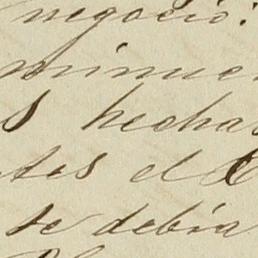 negocio:
minue
s hechas
tes el C
se debia